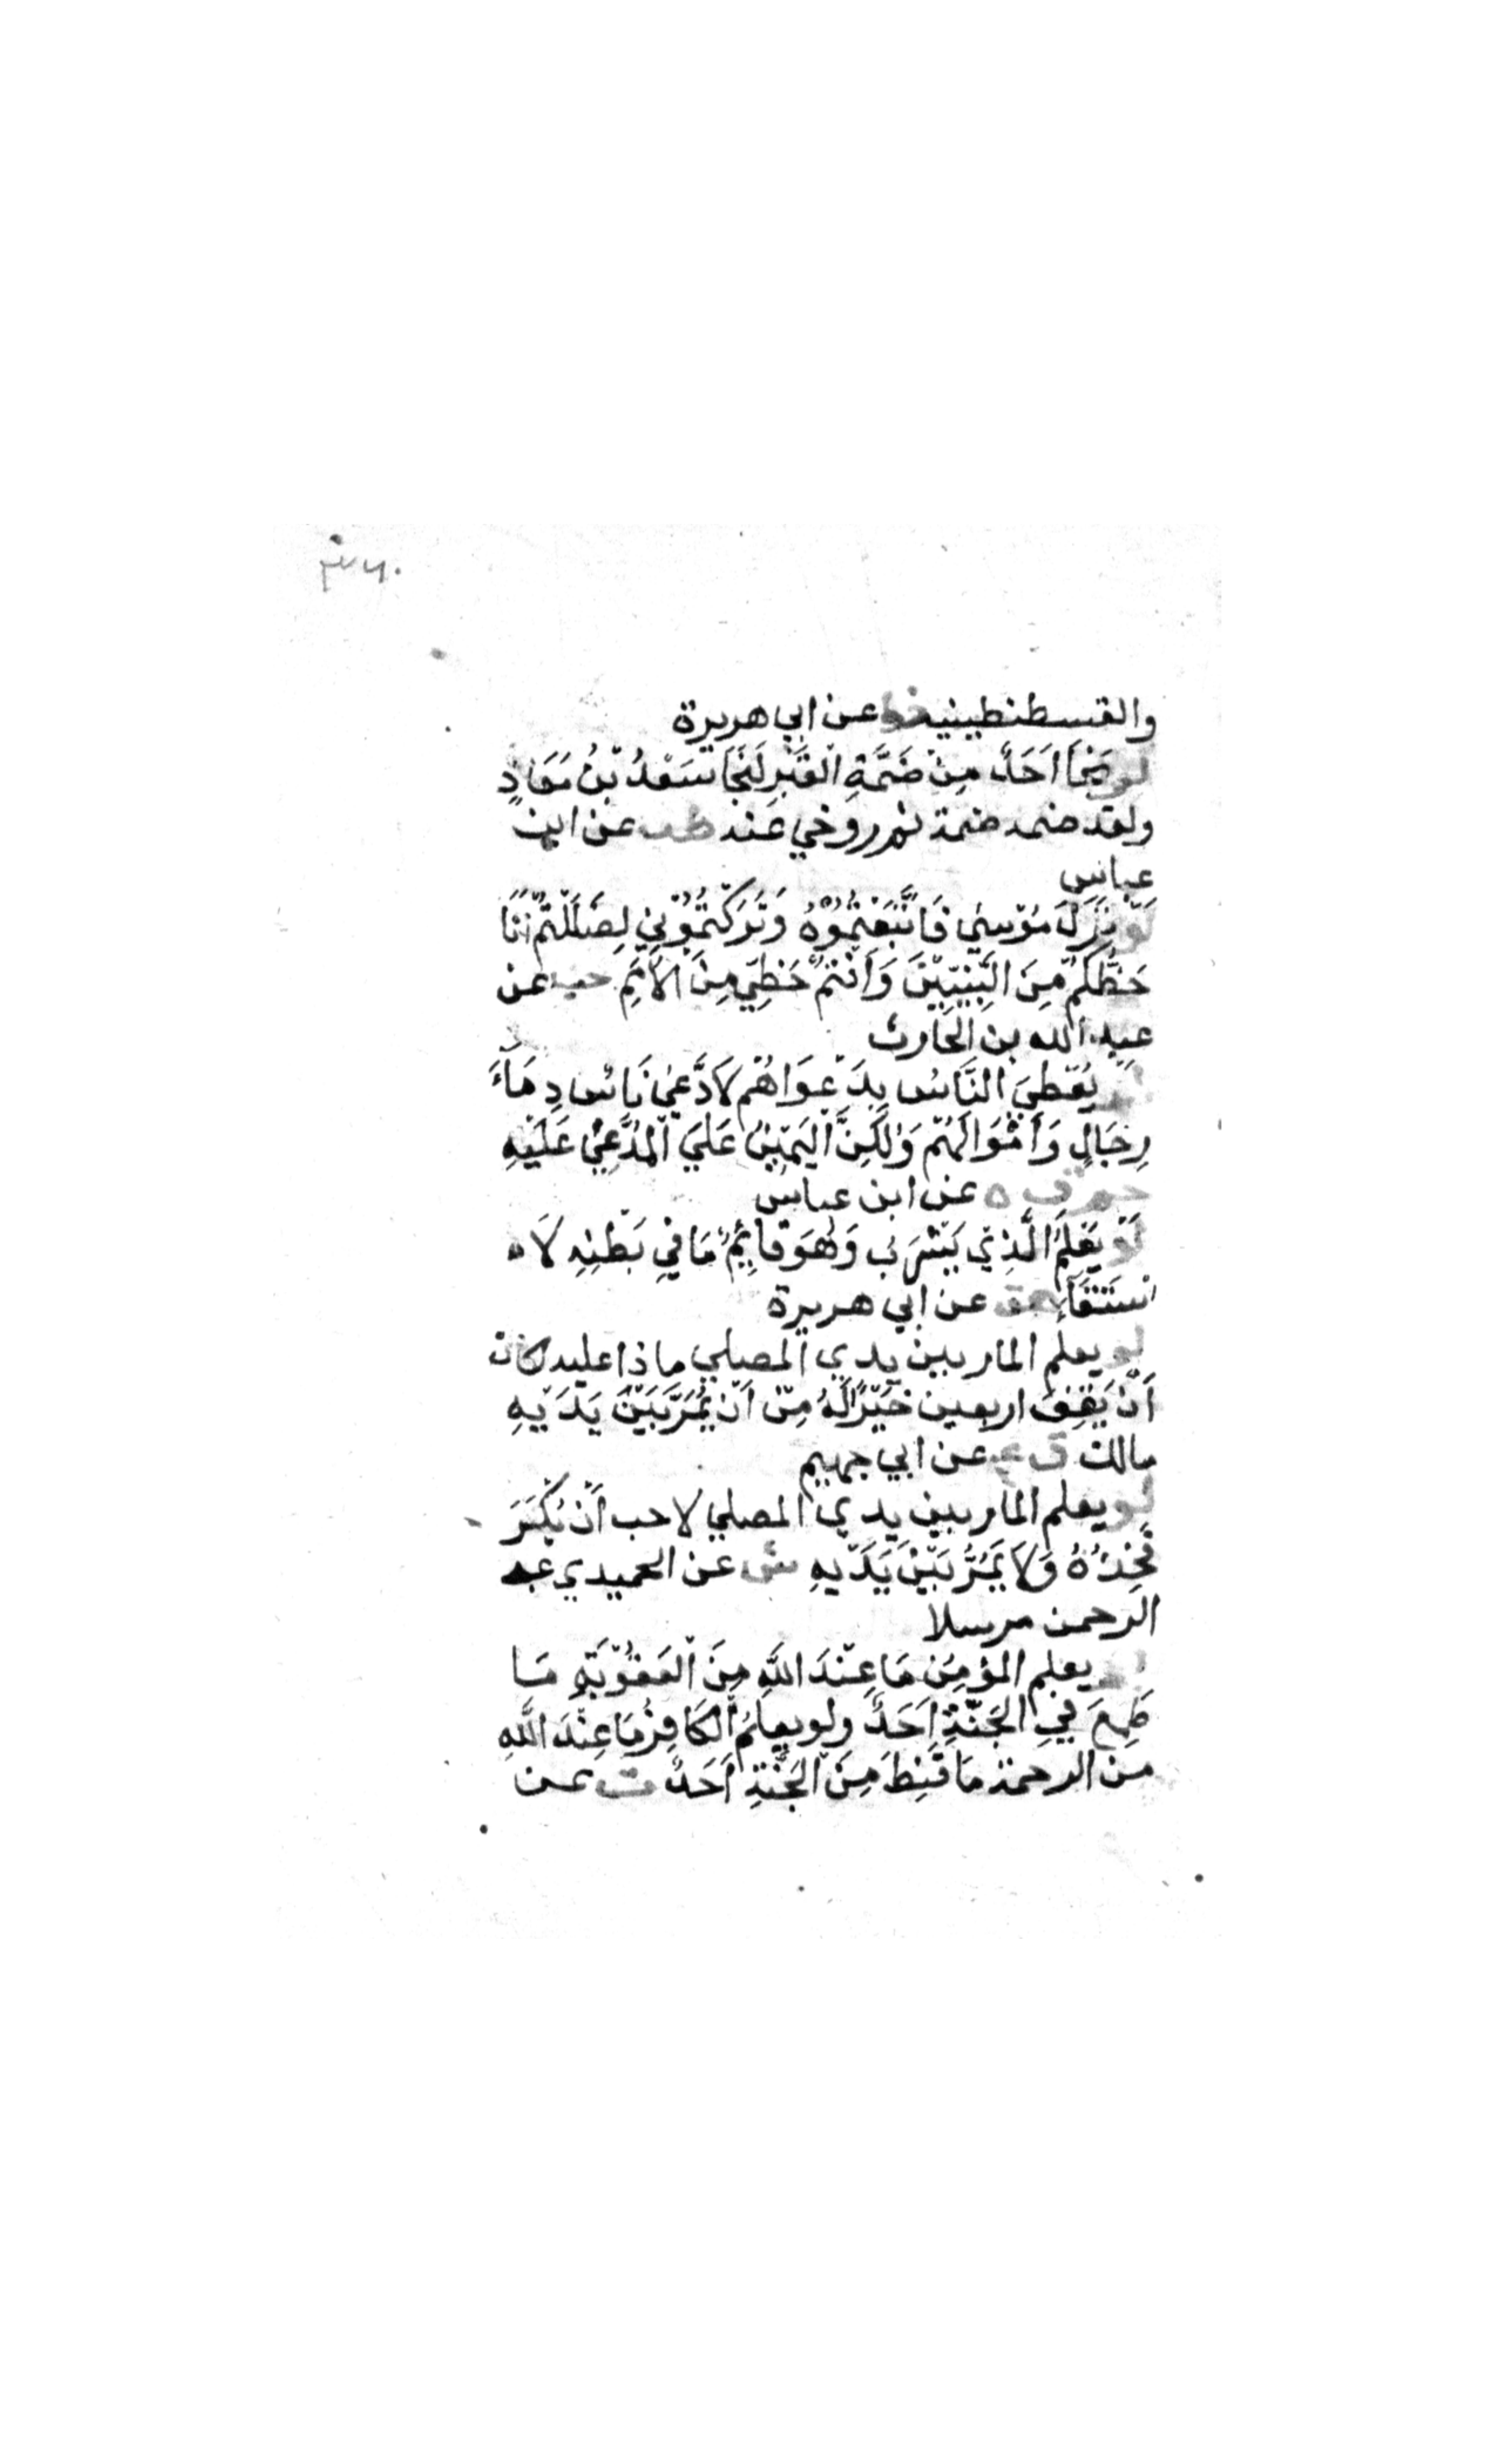 ٣٦٠
والقسطنطينيه خط عن ابي هريرة
لو نجَا اَحَدٌ مِنْ ضَمَّةِ الْقَبْرِ لَنَجَا سَعْدُ بْنُ مُعَاذٍ
ولقد ضمه ضمة ثم روخي عنه طب عن ابن
عباس
لَوْ نَزَلَ مُوْسي فَاتَّبَعْتُمُوْهُ وَتَرَكْتُمُوْنِي لَضَلَلْتُمْ اَنَا
حَظُّكُمْ مِنَ النَّبِيِّيْنَ وَاَنْتُمْ حَظِّي مِنَ الْاُمَمِ هب عن
عبد الله بن الحارث
لو يُعْطَي النَّاسُ بِدَعْوَاهُمْ لَادَّعيٰ نَاسٌ دِمَاءَ
رِجَالٍ وَاَمْوَالَهُمْ وَلٰكِنَّ الْيَمِيْنُ عَلَي الْمُدَّعيٰ عَلَيْهِ
حم ق ه عن ابن عباس
لَوْ يَعْلَمُ الَّذِيْ يَشْرَبُ وَهُوَ قَايِمٌ مَا فِي بَطْنِهِ لَا
اسْتَقَاءَ هق عن ابي هريرة
لو يعلم المار بين يدي المصلي ماذا عليه لكان
اَنْ يَقِفَ اربعين خَيْرًا لَهُ مِنْ اَنْ يَمُرَّ بَيْنَ يَدَيْهِ
مالك ق ع عن ابي جهيم
لو يعلم المار بين يدي المصلي لاحب اَنْ يُكْسَرَ
فَخِذُهُ وَلَا يَمُرُّ بَيْنَ يَدَيْهِ ش عن الحميدي عبد
الرحمن مرسلا
لو يعلم المؤمِنُ مَا عِنْدَ اللّٰهِ مِنَ الْعُقُوْبَةِ مَا
طَمِعَ فِي الْجَنَّةِ اَحَدٌ ولو يعلَمُ الْكَافِرُ مَا عِنْدَ اللّٰهِ
من الرحمة مَا قَنِطَ مِنَ الْجَنَّةِ اَحَدٌ ت عن